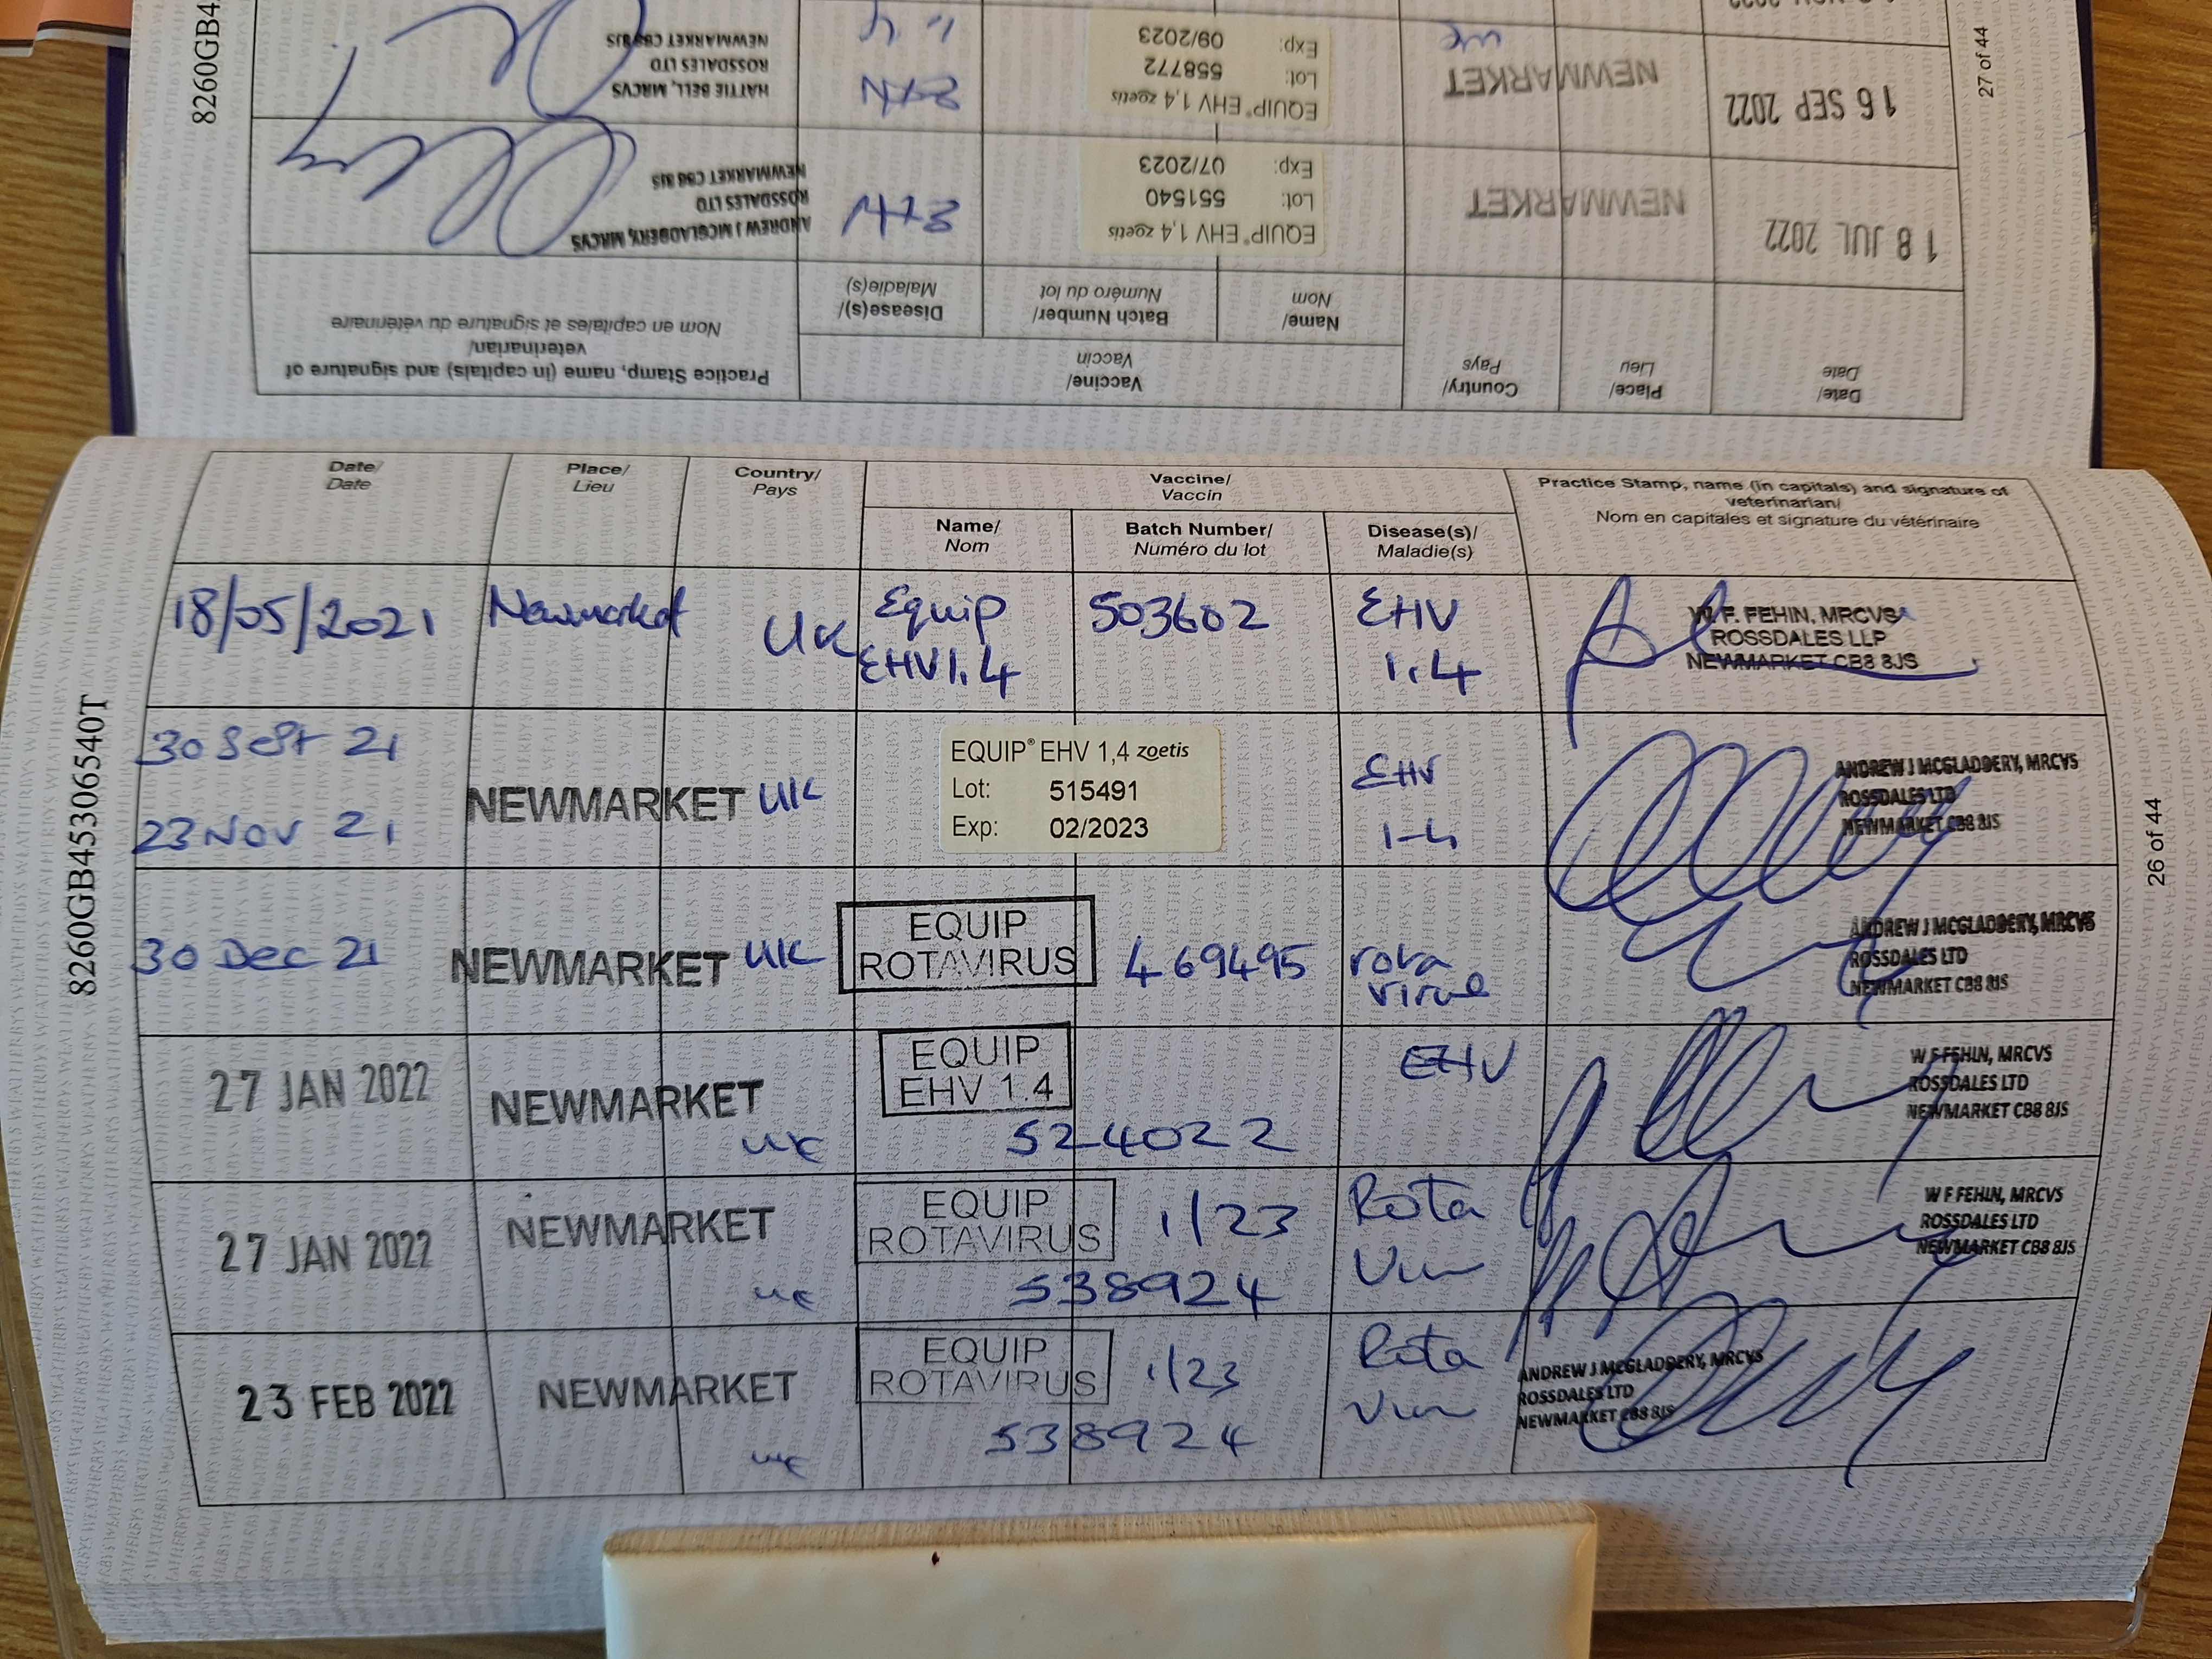 8260GB4
27 of 44
16 SEP 2022
NEWMARKET
UK
EQUIP® EHV 1,4 zoetis
Lot: 558772
Exp: 09/2023
EHV
1.4
HATTIE BELL, MRCVS
ROSSDALES LTD
NEWMARKET CB8 8JS
18 JUL 2022
NEWMARKET
EQUIP® EHV 1,4 zoetis
Lot: 551540
Exp: 07/2023
EHV
ANDREW J MCGLADDERY, MRCVS
ROSSDALES LTD
NEWMARKET CB8 8JS
Date/
Date
Place/
Lieu
Country/
Pays
Vaccine/
Vaccin
Name/
Nom
Batch Number/
Numéro du lot
Disease(s)/
Maladie(s)
Practice Stamp, name (in capitals) and signature of
veterinarian/
Nom en capitales et signature du vétérinaire
Date/
Date
Place/
Lieu
Country/
Pays
Vaccine/
Vaccin
Name/
Nom
Batch Number/
Numéro du lot
Disease(s)/
Maladie(s)
Practice Stamp, name (in capitals) and signature of
veterinarian/
Nom en capitales et signature du vétérinaire
18/05/2021
Newmarket
UK
Equip
EHV 1.4
503602
EHV
1.4
W. F. FEHIN, MRCVS
ROSSDALES LLP
NEWMARKET CB8 8JS
30 Sept 21
23 Nov 21
NEWMARKET
UK
EQUIP® EHV 1,4 zoetis
Lot: 515491
Exp: 02/2023
EHV
1-4
ANDREW J MCGLADDERY, MRCVS
ROSSDALES LTD
NEWMARKET CB8 8JS
30 Dec 21
NEWMARKET
UK
EQUIP
ROTAVIRUS
469495
rota
virus
ANDREW J MCGLADDERY, MRCVS
ROSSDALES LTD
NEWMARKET CB8 8JS
27 JAN 2022
NEWMARKET
UK
EQUIP
EHV 1.4
524022
EHV
W F FEHIN, MRCVS
ROSSDALES LTD
NEWMARKET CB8 8JS
27 JAN 2022
NEWMARKET
UK
EQUIP
ROTAVIRUS
1/23
538924
Rota
Virus
W F FEHIN, MRCVS
ROSSDALES LTD
NEWMARKET CB8 8JS
23 FEB 2022
NEWMARKET
UK
EQUIP
ROTAVIRUS
1/23
538924
Rota
Virus
ANDREW J MCGLADDERY, MRCVS
ROSSDALES LTD
NEWMARKET CB8 8JS
8260GB45306540T
26 of 44